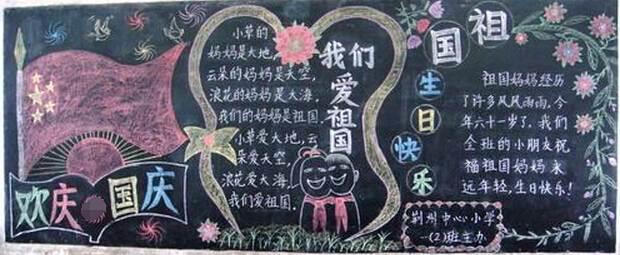 欢庆国庆
小草的
妈妈是大地,
云朵的妈妈是天空,
浪花的妈妈是大海,
我们的妈妈是祖国.
小草爱大地,云
朵爱天空,
浪花爱大海,
我们爱祖国.
我们
爱祖国
祖国
生日快乐
祖国妈妈经历
了许多风风雨雨,今
年六十一岁了,我们
全班的小朋友祝
福祖国妈妈永
远年轻,生日快乐!
荆州中心小学
一(2)班主办